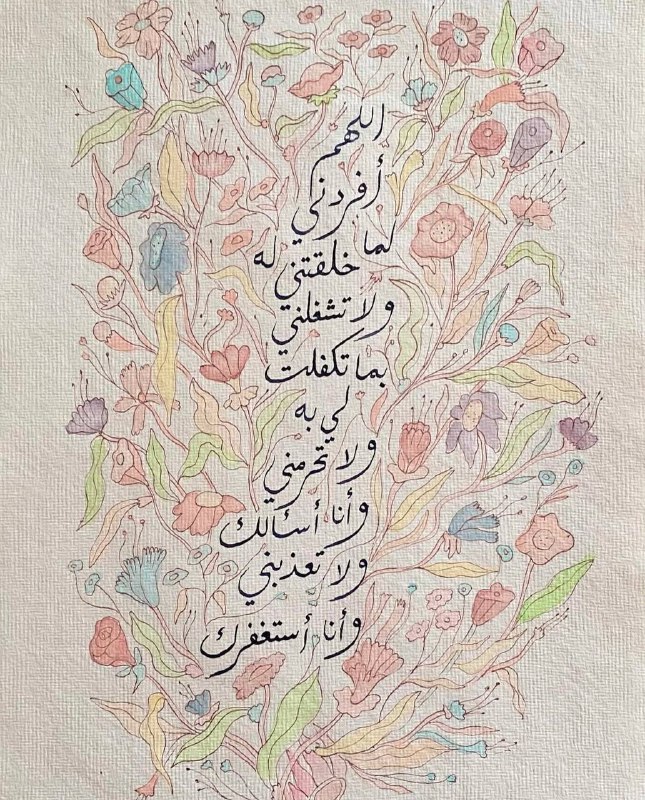 اللهم
أفردني
لما خلقتني له
ولا تشغلني
بما تكفلت
لي به
ولا تحرمني
وأنا أسألك
ولا تعذبني
وأنا أستغفرك